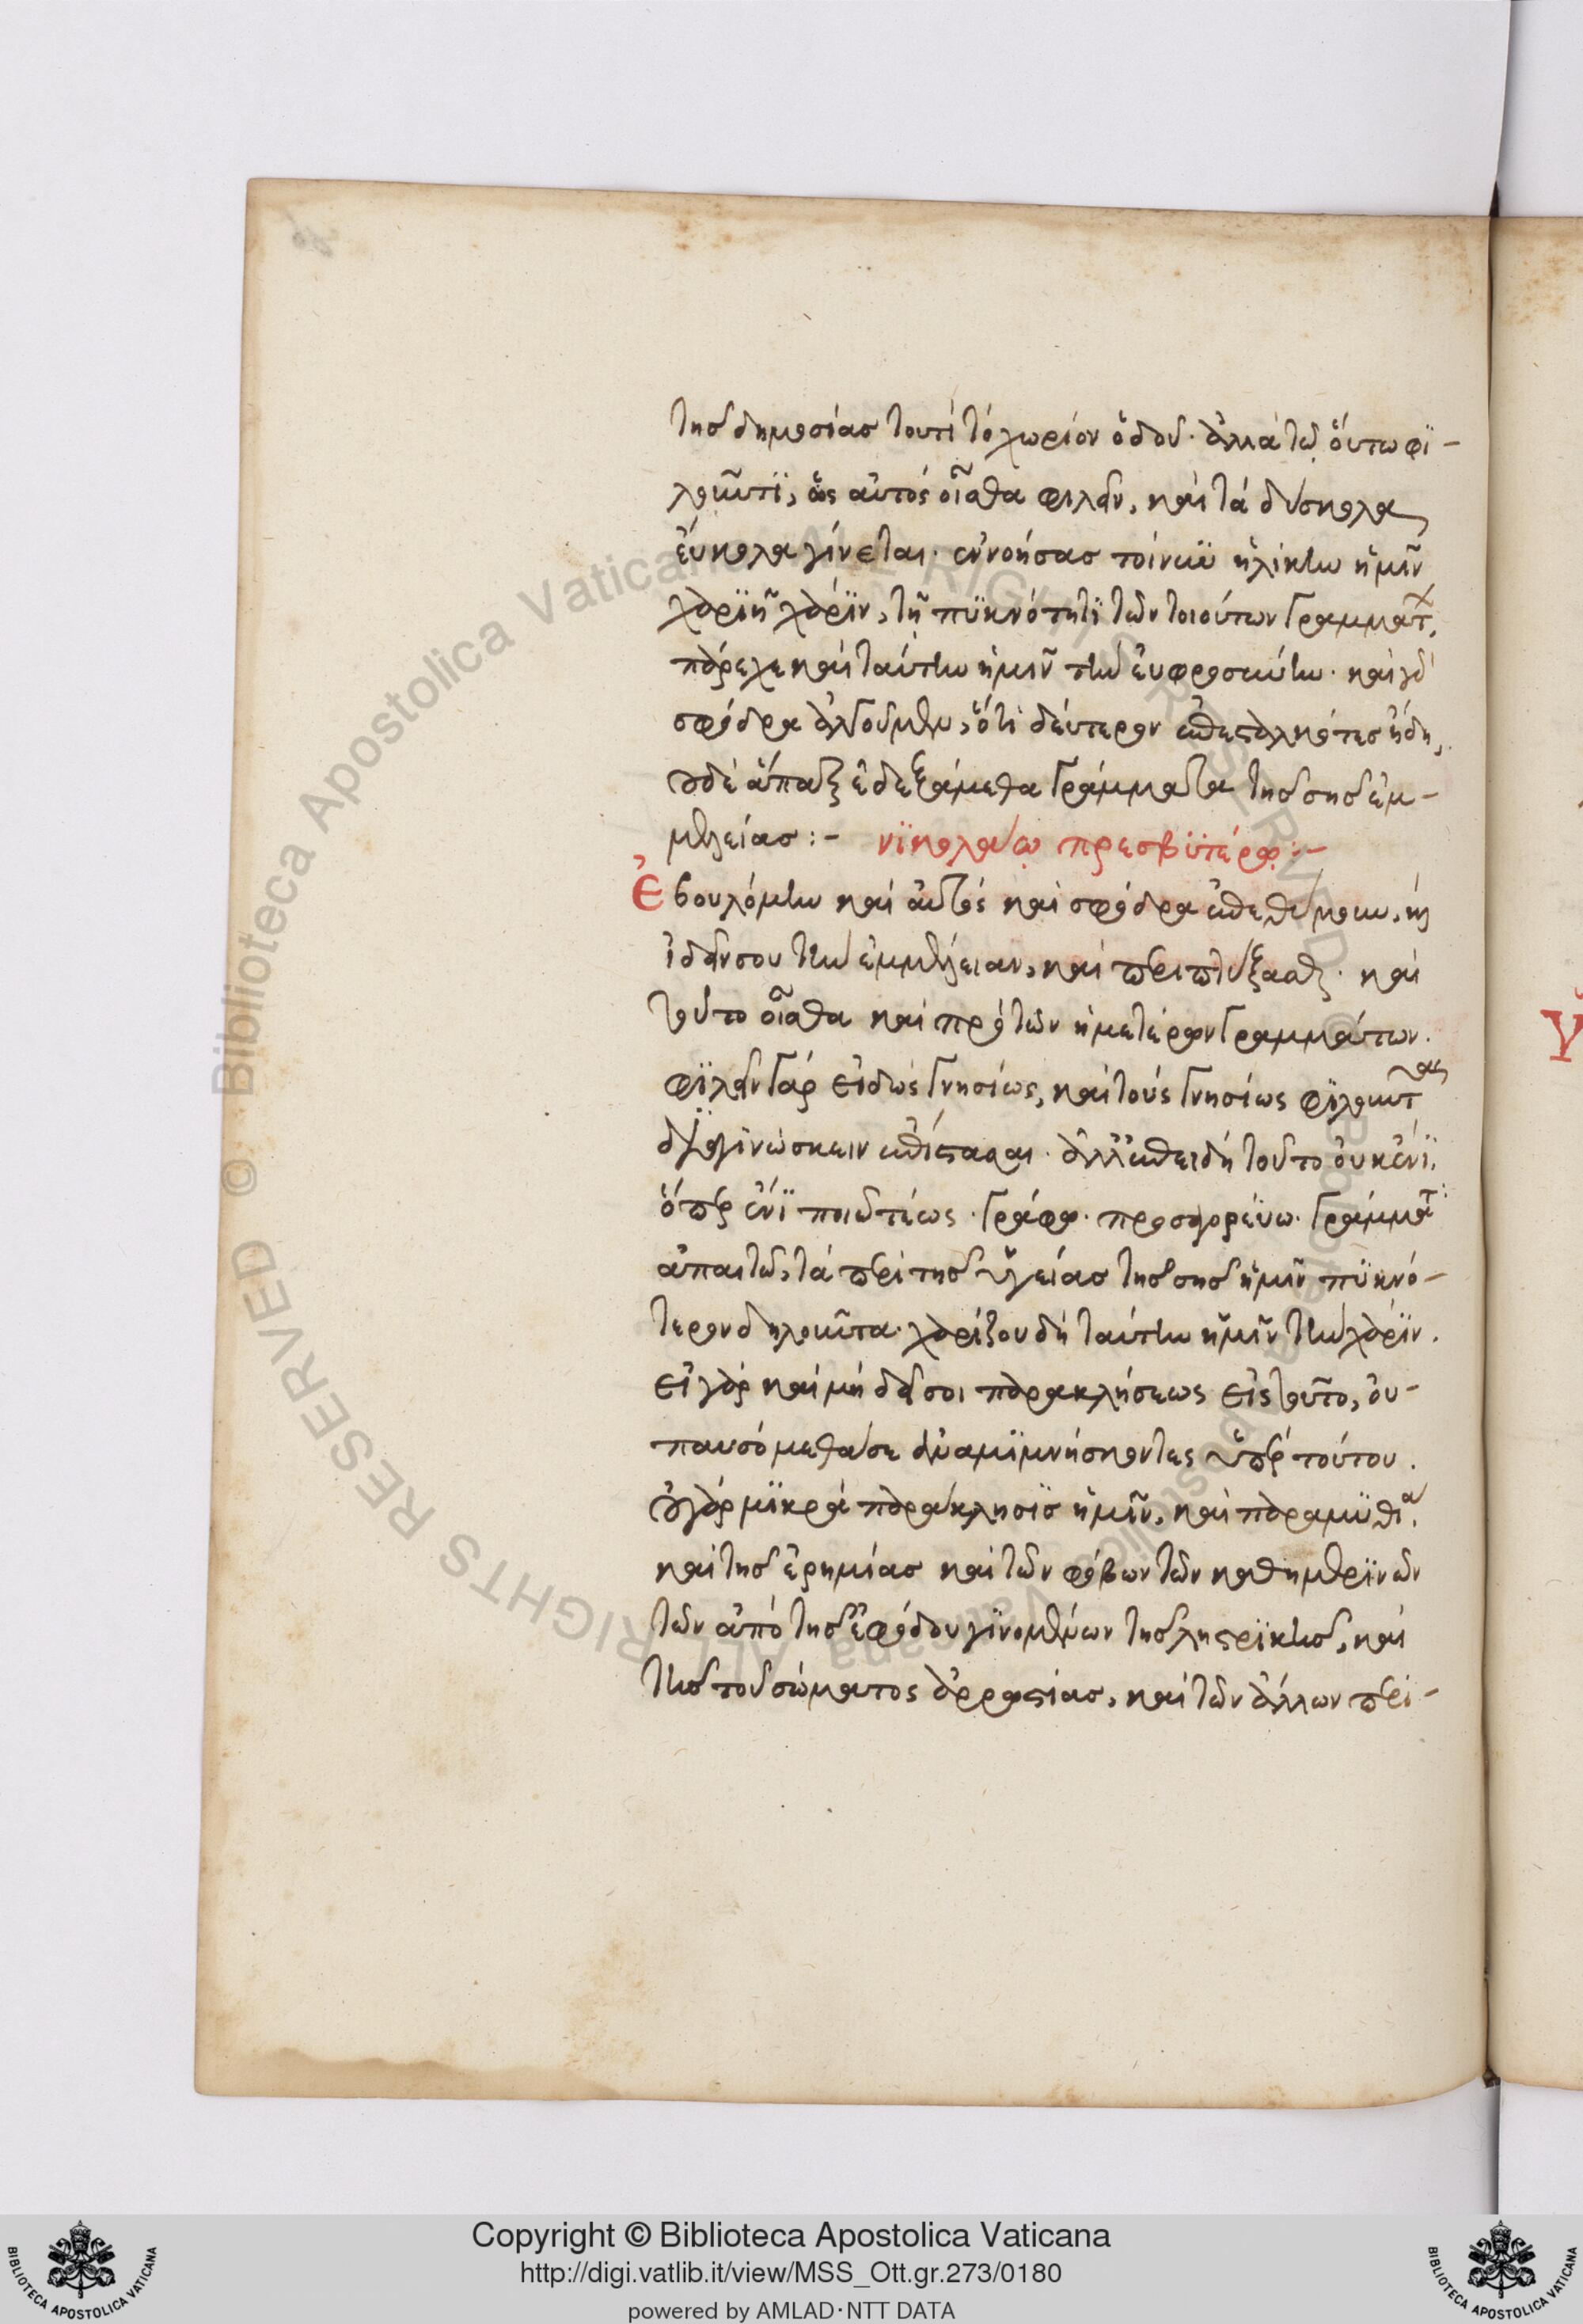 της δημοσίας τουτὶ τὸ χωρίον ὁδοῦ· ἀλλὰ τῷ οὕτω φϊ-
λοῦντϊ, ὡς αὐτὸς οἶσθα φιλεῖν, καὶ τὰ δύσκολα
εὔκολα γίνεται· ἐννοήσας τοίνυν ἡλίκην ἡμῖν
χαρϊῇ χάρϊν, τῇ πϋκνότητϊ τῶν τοιούτων γραμμάτ,
πάρεχε καὶ ταύτην ἡμῖν τὴν εὐφροσύνην· καὶ γὰρ
σφόδρα ἀλγοῦμεν, ὅτι δεύτερον ἐπεσταλκότες ἤδη,
οὐδὲ ἅπαξ ἐδεξάμεθα γράμματα τῆς σῆς ἐμ-
μελείας:- νϊκολάῳ πρεσβϋτέρῳ:-
Ἐβουλόμην καὶ αὐτὸς καὶ σφόδρα ἐπεθύμουν, καὶ
ἰδεῖν σου τὴν ἐμμέλειαν, καὶ περιπτύξασθαι· καὶ
τοῦτο οἶσθα καὶ πρὸ τῶν ἡμετέρων γραμμάτων.
φϊλεῖν γὰρ εἰδὼς γνησίως, καὶ τοὺς γνησίως φϊλοῦντας
διαγινώσκειν ἐπίστασαι· ἀλλ' ἐπειδὴ τοῦτο οὐκ ἔνϊ.
ὅπερ ἔνϊ ποιῶ τέως· γράφω· προσαγορεύω· γράμματ
ἀπαιτῶ, τὰ περὶ τῆς ὑγείας τῆς σῆς ἡμῖν πϋκνό-
τερον δηλοῦντα· χαρίζου δὴ ταύτην ἡμῖν τὴν χάρϊν.
εἰ γὰρ καὶ μὴ δεῖ σοι παρακλήσεως εἰς τοῦτο, οὐ
παυσόμεθά σε ἀναμϊμνήσκοντες ὑπὲρ τούτου.
οὐ γὰρ μϊκρὰ παράκλησϊς ἡμῖν, καὶ παραμϋθία,
καὶ τῆς ἐρημίας καὶ τῶν φόβων τῶν καθημερϊνῶν
τῶν ἀπὸ τῆς ἐφόδου γϊνομένων τῆς ληστρϊκῆς, καὶ
τῆς τοῦ σώματος ἀρρωστίας, καὶ τῶν ἄλλων περι-
Copyright © Biblioteca Apostolica Vaticana
http://digi.vatlib.it/view/MSS_Ott.gr.273/0180
powered by AMLAD·NTT DATA